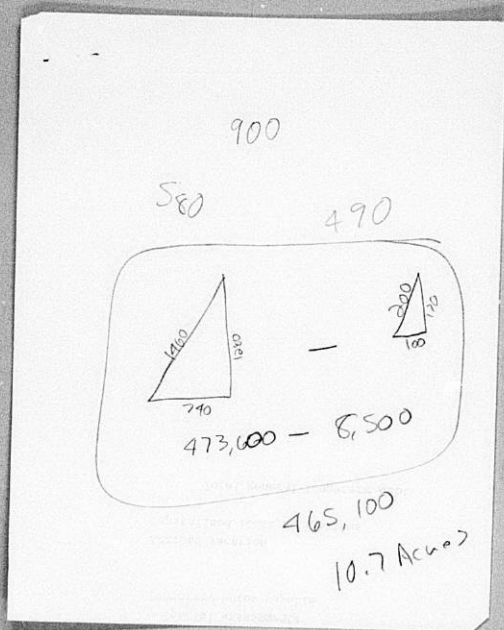 900
580
490
1460
1280
740
—
200
170
100
473,600 — 8,500
465,100
10.7 Acres